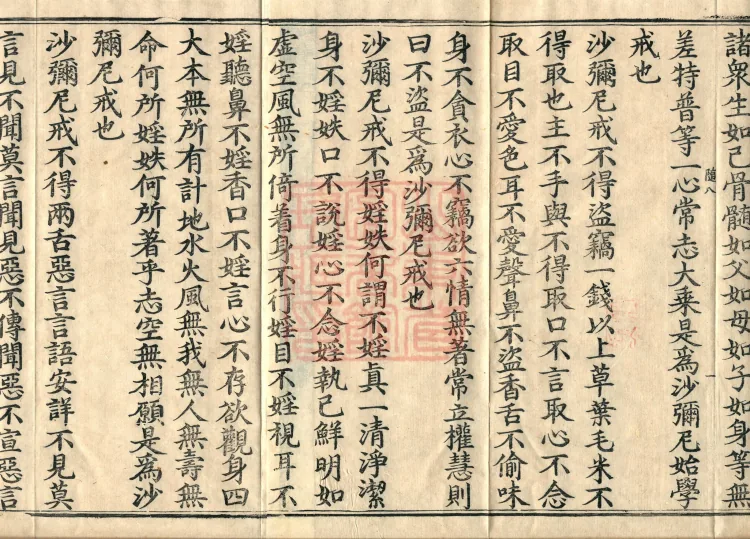 諸衆生如己骨髓如父如母如子如身等無
差特普等一心常志大乗是爲沙彌尼始學
戒也
隨八
沙彌尼戒不得盜竊一錢以上草葉毛米不
得取也主不手與不得取口不言取心不念
取目不愛色耳不愛聲鼻不盜香舌不偷味
身不貪衣心不竊欲六情無著常立權慧則
曰不盜是爲沙彌尼戒也
沙彌尼戒不得婬妷何謂不婬眞一清淨潔
身不婬妷口不說婬心不念婬執己鮮明如
虛空風無所倚着身不行婬目不婬視耳不
婬聽鼻不婬香口不婬言心不存欲觀身四
大本無所有計地水火風無我無人無壽無
命何所婬妷何所著乎志空無相願是爲沙
彌尼戒也
沙彌尼戒不得兩舌惡言言語安詳不見莫
言見不聞莫言聞見惡不傳聞惡不宣惡言